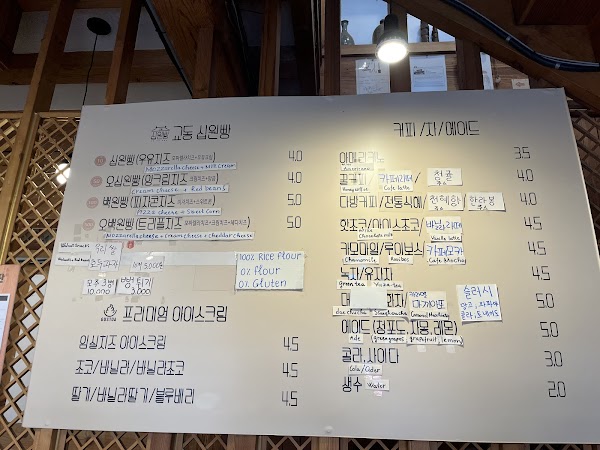 교동 십원빵
십원빵(우유치즈 4.0
Mozzarella cheese + Milk Cream
오십원빵(앙크림치즈 4.0
Cream cheese + Red beans
백원빵(피자콘치즈 5.0
Pizza cheese + Sweet Corn
오백원빵(트리플치즈 5.0
Mozzarella cheese + Cream cheese + Cheddar cheese
100% Rice Flour
0% Flour
0% Gluten
5,000원
10,000
3,000
프리미엄 아이스크림
임실치즈 아이스크림 4.5
초코/바닐라/바닐라초코 4.5
딸기/바닐라딸기/블루베리 4.5
커피/차/에이드
아메리카노 3.5
꿀커피 카페라떼 청귤 4.0
Cafe latte 주스
다방커피/전통식혜 천혜향 한라봉 4.0
주스 주스
핫초코/아이스초코 바닐라라떼 4.5
Vanilla latte
카모마일/루이보스 카페모카 4.5
Chamomile Rooibos Cafe Mocha
녹차/유자차 4.5
green tea Yuza-tea
슬러시
5.0
에이드(청포도,자몽,레몬) 5.0
Ade (greengrapes, grapefruit, lemon)
콜라,사이다 3.0
Cola/Cider
생수 Water 2.0